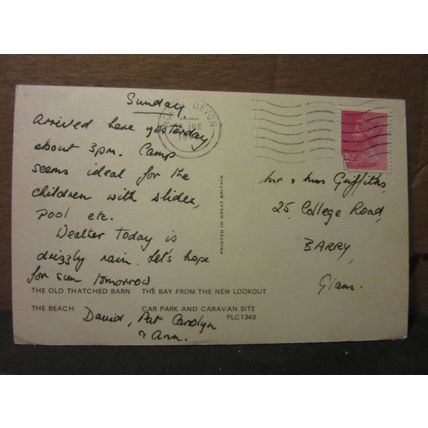 Sunday.
Arrived here yesterday
about 3pm. Camp
seems ideal for the
children with slides,
pool etc.
Weather Today is
drizzly rain. Let's hope
for sun tomorrow
David, Pat Carolyn
& Ann.
THE OLD THATCHED BARN THE BAY FROM THE NEW LOOKOUT
THE BEACH CAR PARK AND CARAVAN SITE
PLC1349
PRINTED IN GREAT BRITAIN
DEVON
Mr & Mrs Griffiths,
25, College Road,
BARRY,
Glam.